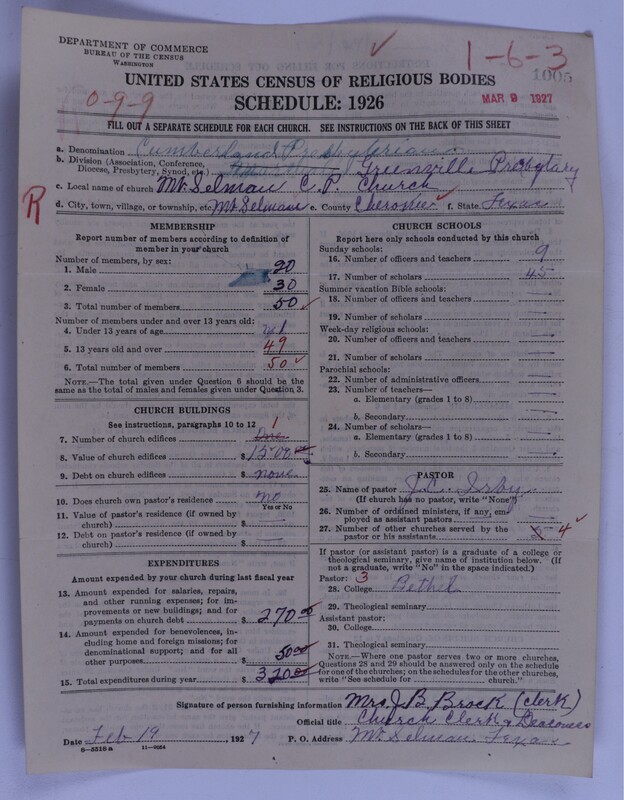 DEPARTMENT OF COMMERCE
BUREAU OF THE CENSUS
WASHINGTON
1-6-3
1005
UNITED STATES CENSUS OF RELIGIOUS BODIES
SCHEDULE: 1926
MAR 9 1927
0-9-9
FILL OUT A SEPARATE SCHEDULE FOR EACH CHURCH. SEE INSTRUCTIONS ON THE BACK OF THIS SHEET
a. Denomination Cumberland Presbyterian
b. Division (Association, Conference, Diocese, Presbytery, Synod, etc.) Greenville Presbytary
c. Local name of church Mt. Selman C. P. Church
R
d. City, town, village, or township, etc. Mt. Selman e. County Cherokee f. State Texas
MEMBERSHIP
Report number of members according to definition of
member in your church
Number of members, by sex:
1. Male 20
2. Female 30
3. Total number of members 50
Number of members under and over 13 years old:
4. Under 13 years of age 1
5. 13 years old and over 49
6. Total number of members 50
NOTE.—The total given under Question 6 should be
same as the total of males and females given under Question 3.
CHURCH BUILDINGS
See instructions, paragraphs 10 to 12
7. Number of church edifices One 1
8. Value of church edifices $ 1500.00
9. Debt on church edifices $ none
10. Does church own pastor's residence no
Yes or No
11. Value of pastor's residence (if owned by
church) $
12. Debt on pastor's residence (if owned by
church) $
EXPENDITURES
Amount expended by your church during last fiscal year
13. Amount expended for salaries, repairs,
and other running expenses; for im-
provements or new buildings; and for
payments on church debt $ 270.00
14. Amount expended for benevolences, in-
cluding home and foreign missions; for
denominational support; and for all
other purposes $ 50.00
15. Total expenditures during year $ 320.00
CHURCH SCHOOLS
Report here only schools conducted by this church
Sunday schools:
16. Number of officers and teachers 9
17. Number of scholars 45
Summer vacation Bible schools:
18. Number of officers and teachers
19. Number of scholars
Week-day religious schools:
20. Number of officers and teachers
21. Number of scholars
Parochial schools:
22. Number of administrative officers
23. Number of teachers—
a. Elementary (grades 1 to 8)
b. Secondary
24. Number of scholars—
a. Elementary (grades 1 to 8)
b. Secondary
PASTOR
25. Name of pastor J. C. Irby
(If church has no pastor, write "None")
26. Number of ordained ministers, if any, em-
ployed as assistant pastors
27. Number of other churches served by the
pastor or his assistants 4
If pastor (or assistant pastor) is a graduate of a college or
theological seminary, give name of institution below. (If
not a graduate, write "No" in the space indicated.)
Pastor: 3
28. College Bethel
29. Theological seminary
Assistant pastor:
30. College
31. Theological seminary
NOTE.—Where one pastor serves two or more churches,
Questions 28 and 29 should be answered only on the schedule
for one of the churches; on the schedules for the other churches,
write "See schedule for church."
Signature of person furnishing information Mrs. J. B. Brock (clerk)
Official title Church Clerk & Deaconess
Date Feb 19, 1927 P. O. Address Mt. Selman, Texas
8-5518 a 11-9054